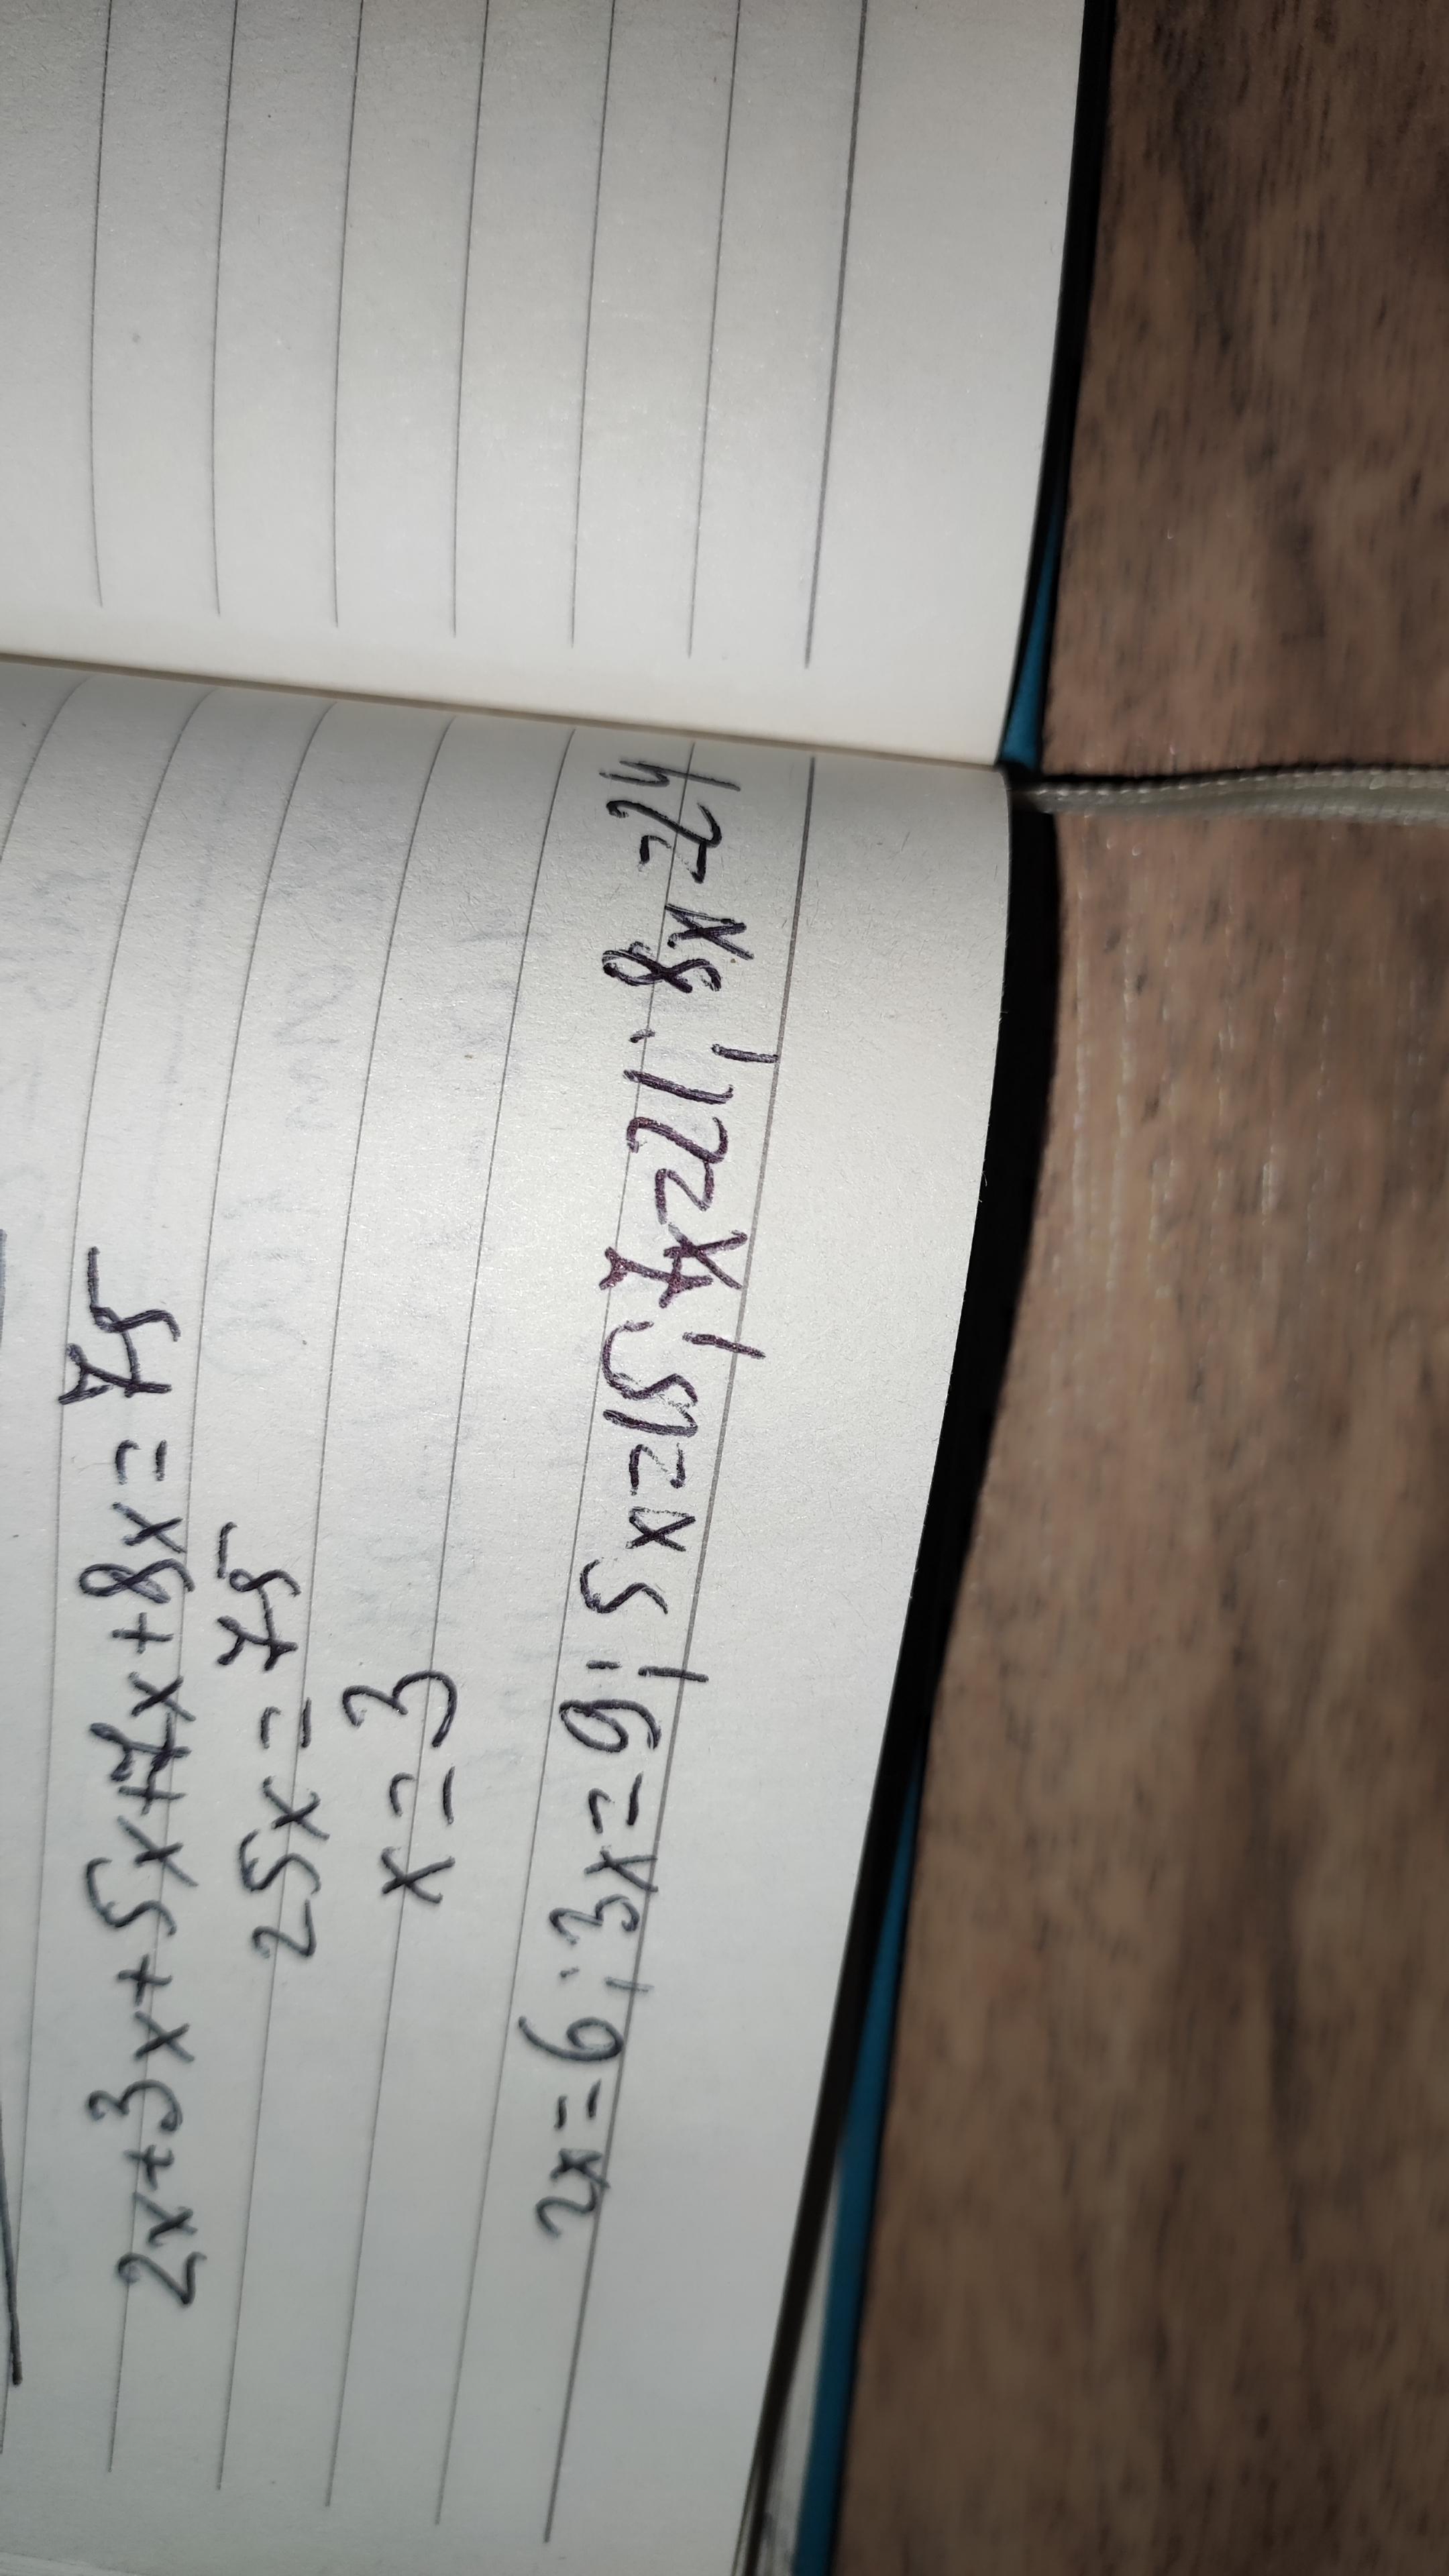 2x+3x+5x+7x+8x=75
25x=75
x=3
2x=6; 3x=9; 5x=15; 7x=21; 8x=24